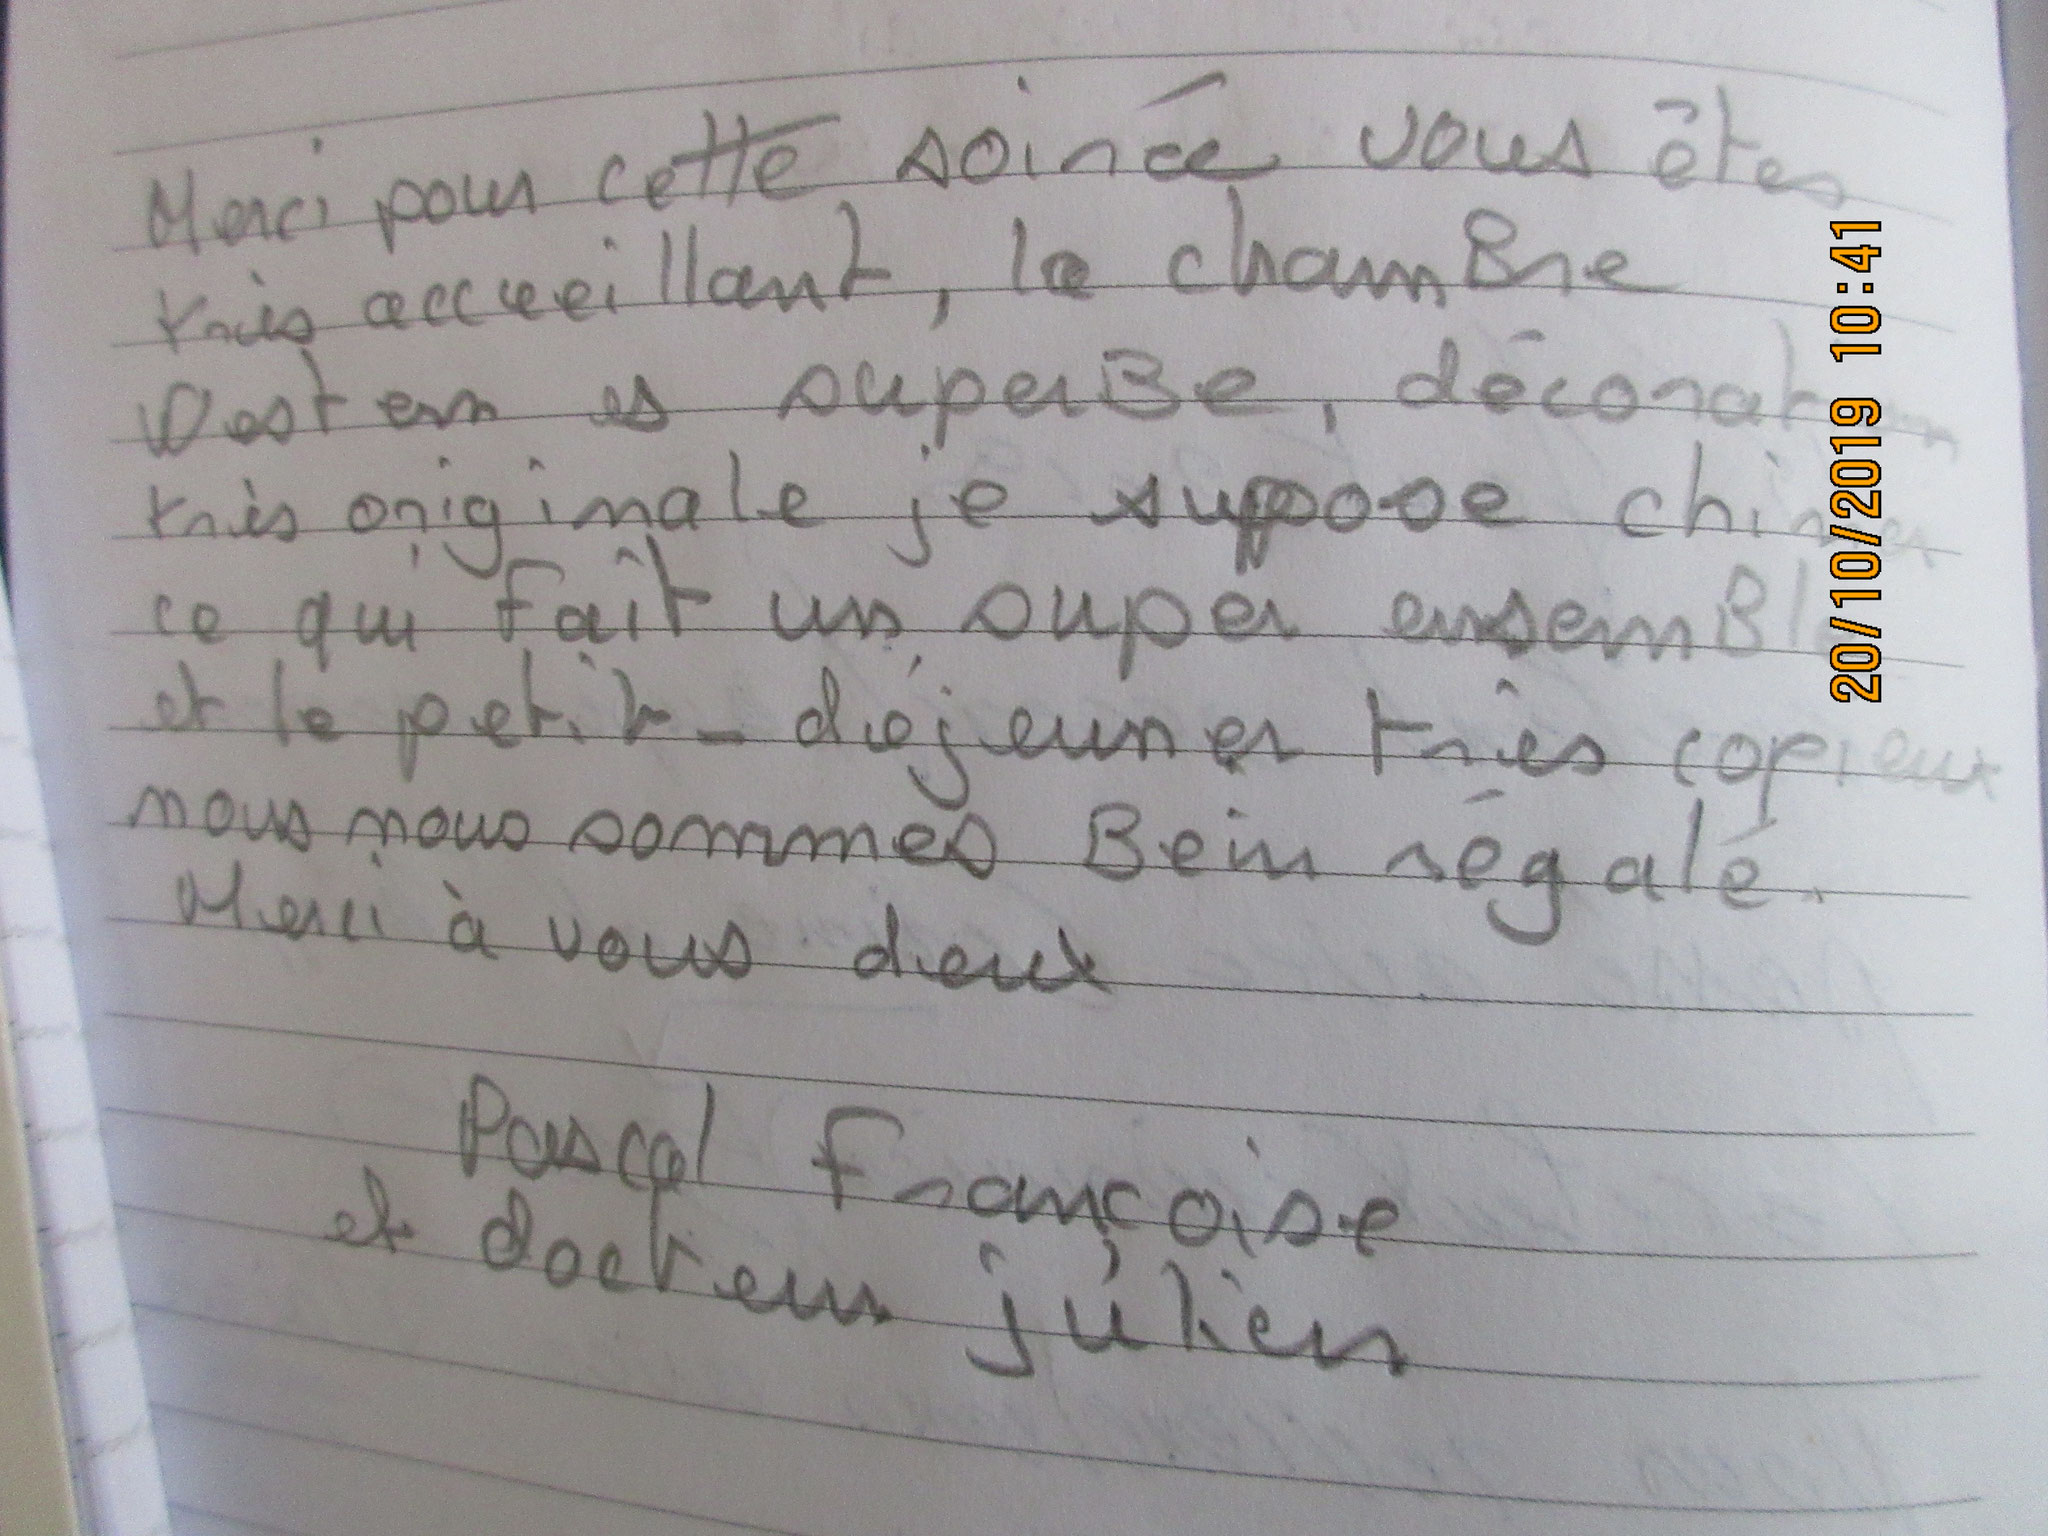 Merci pour cette soirée vous êtes
très accueillant, la chamBre
Oastern es superBe, décoration
très originale je suppose chiner
ce qui faît un super ensemBle
et le petit-déjeuner très copieux
nous nous sommes Bein régalé.
Merci à vous deux
Pascal Françoise
et docteur julien
20/10/2019 10:41